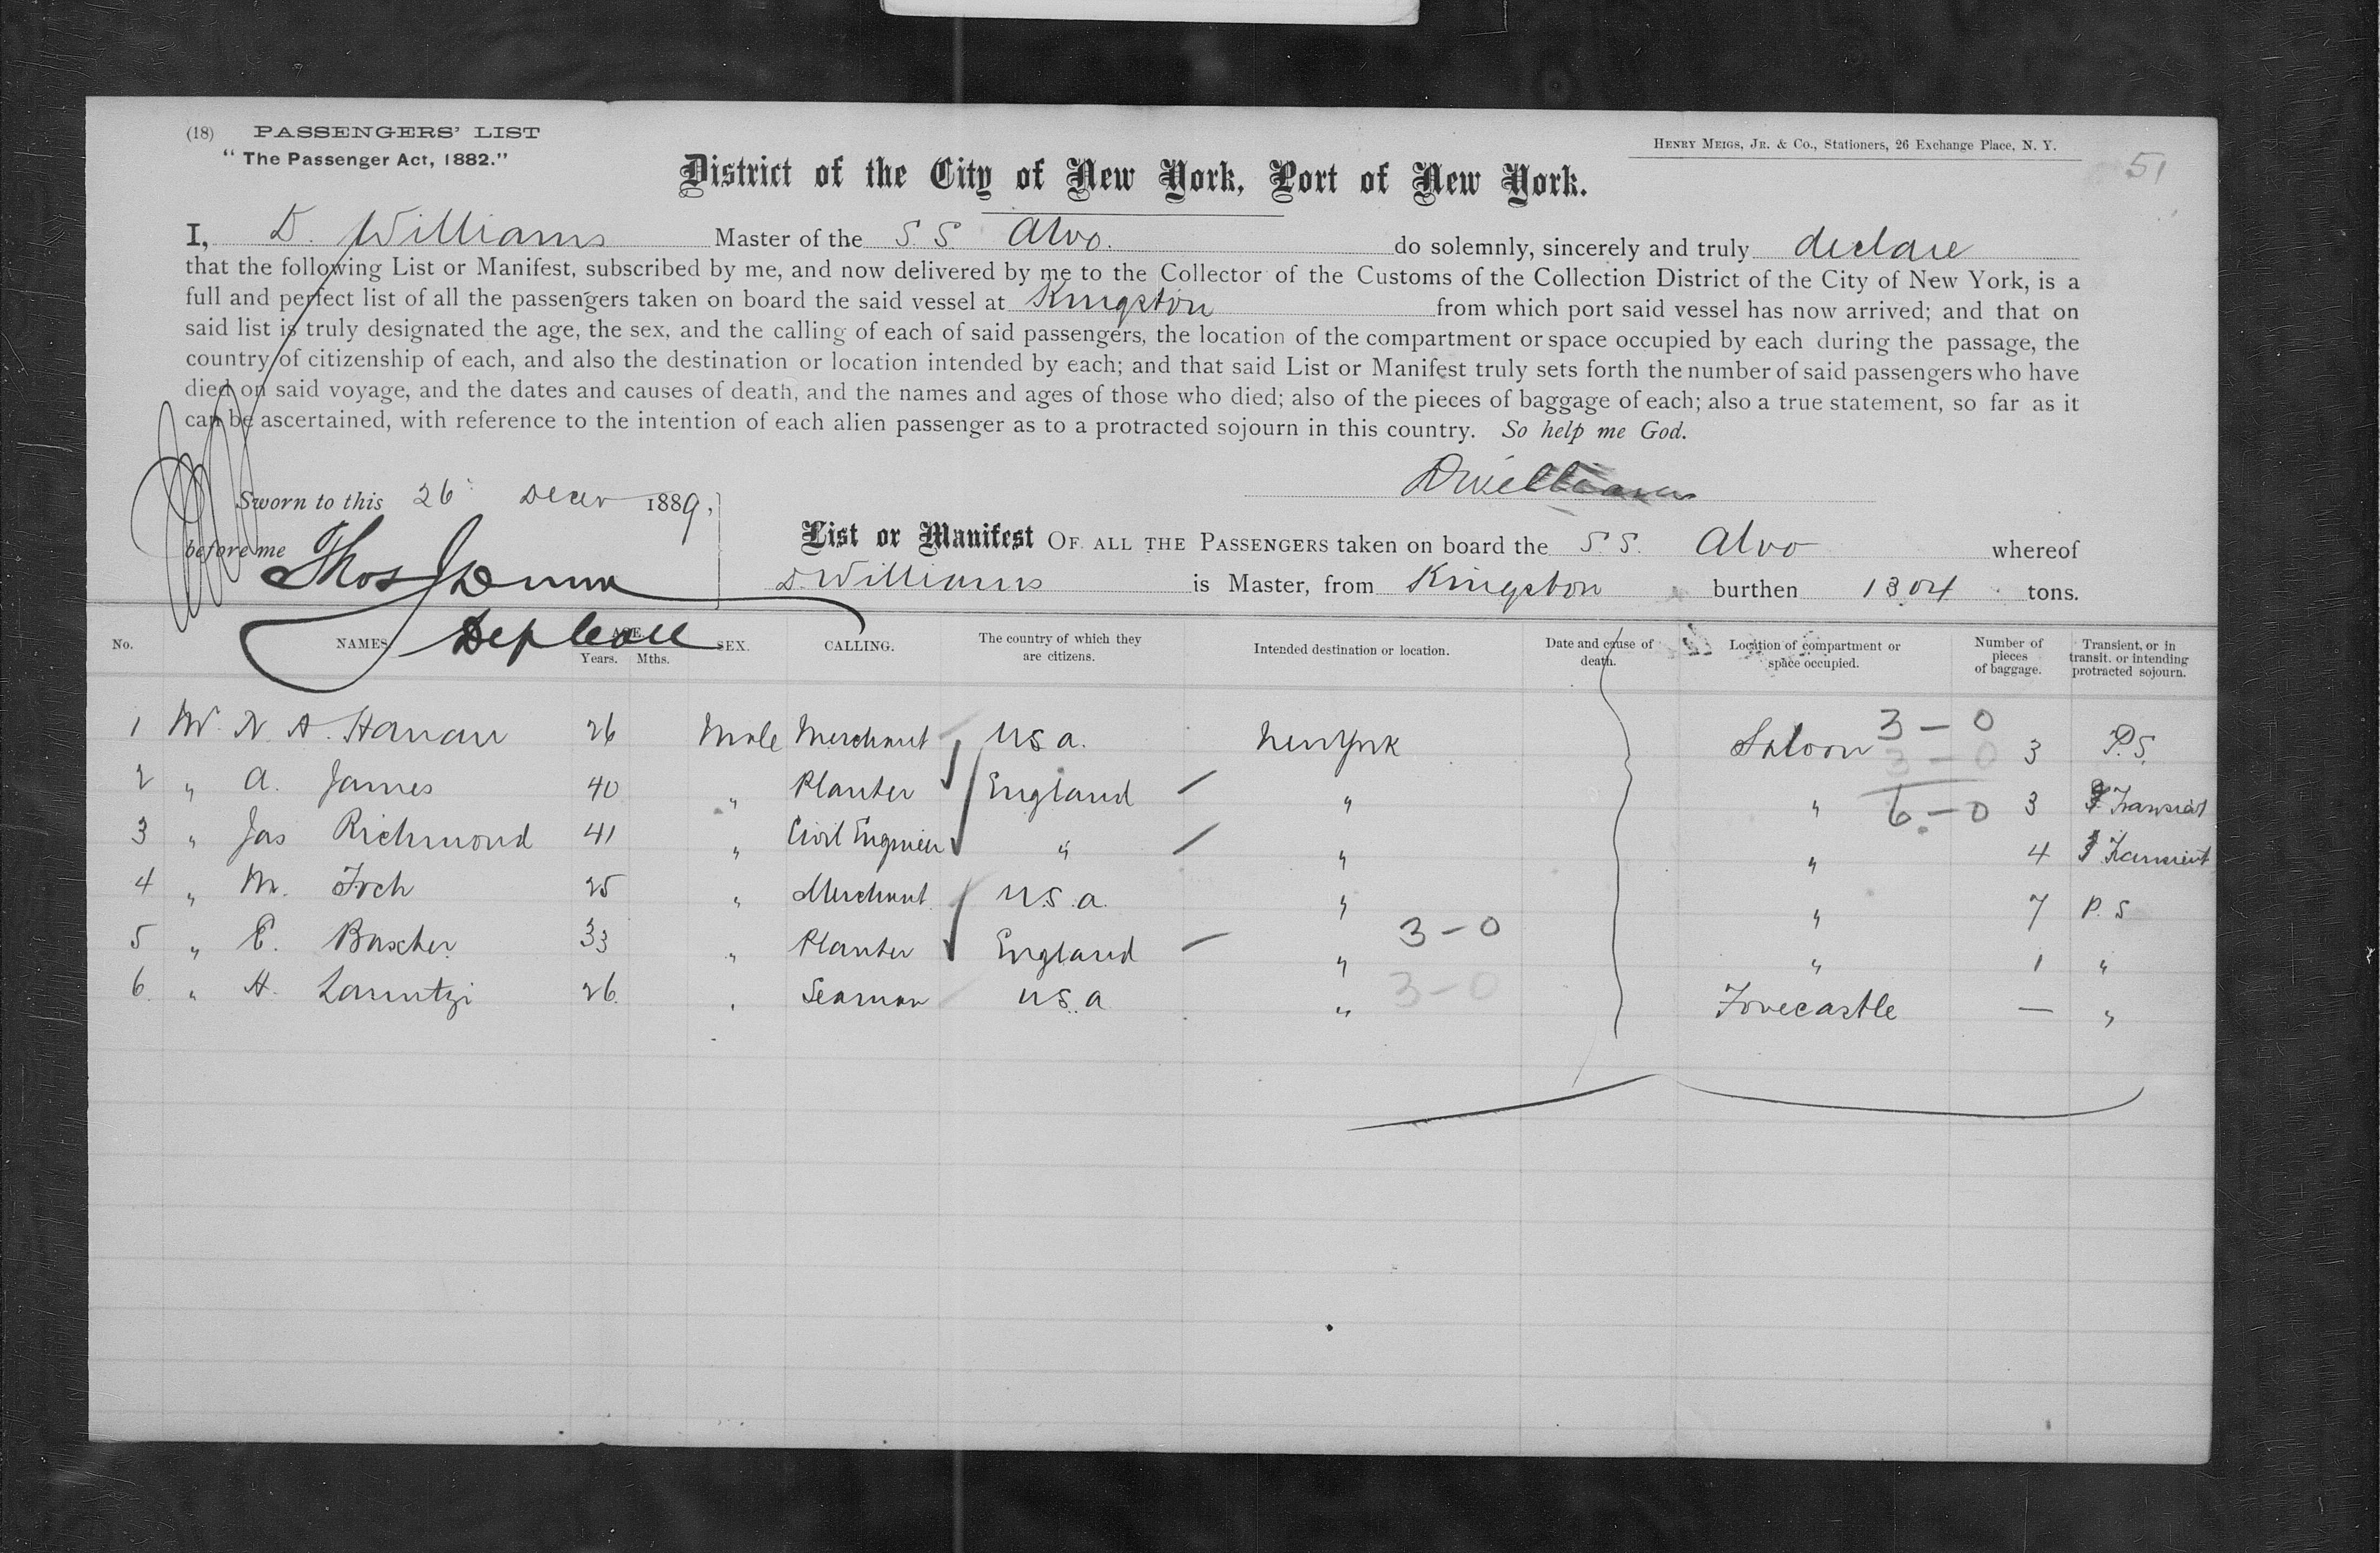 (18) PASSENGERS' LIST
"The Passenger Act, 1882."
HENRY MEIGS, JR. & CO., Stationers, 26 Exchange Place, N. Y.
51
District of the City of New York, Port of New York.
I, D. Williams Master of the S. S. Alvo. do solemnly, sincerely and truly declare
that the following List or Manifest, subscribed by me, and now delivered by me to the Collector of the Customs of the Collection District of the City of New York, is a
full and perfect list of all the passengers taken on board the said vessel at Kingston from which port said vessel has now arrived; and that on
said list is truly designated the age, the sex, and the calling of each of said passengers, the location of the compartment or space occupied by each during the passage, the
country of citizenship of each, and also the destination or location intended by each; and that said List or Manifest truly sets forth the number of said passengers who have
died on said voyage, and the dates and causes of death, and the names and ages of those who died; also of the pieces of baggage of each; also a true statement, so far as it
can be ascertained, with reference to the intention of each alien passenger as to a protracted sojourn in this country. So help me God.
DWilliams
Sworn to this 26 Decer 1889,
before me Thos J Dunn
Dep Coll
List or Manifest OF ALL THE PASSENGERS taken on board the S. S. Alvo whereof
D. Williams is Master, from Kingston burthen 1304 tons.
No. NAMES. AGE. Years. Mths. SEX. CALLING. The country of which they are citizens. Intended destination or location. Date and cause of death. Location of compartment or space occupied. Number of pieces of baggage. Transient, or in transit, or intending protracted sojourn.
1 Mr. N. A. Hanau 26 Male Merchant U S a. New York Saloon 3 - 0 3 P. S.
3 - 0
2 " A. James 40 " Planter England " " 6 - 0 3 Transient
3 " Jas Richmond 41 " Civil Engineer " " " 4 Transient
4 " M. 25 " Merchant U. S. a. " " 7 P. S
5 " E. Bascher 33 " Planter England " 3 - 0 " 1 "
6. " H. 26. " Seaman U. S. a " 3 - 0 Forecastle — "